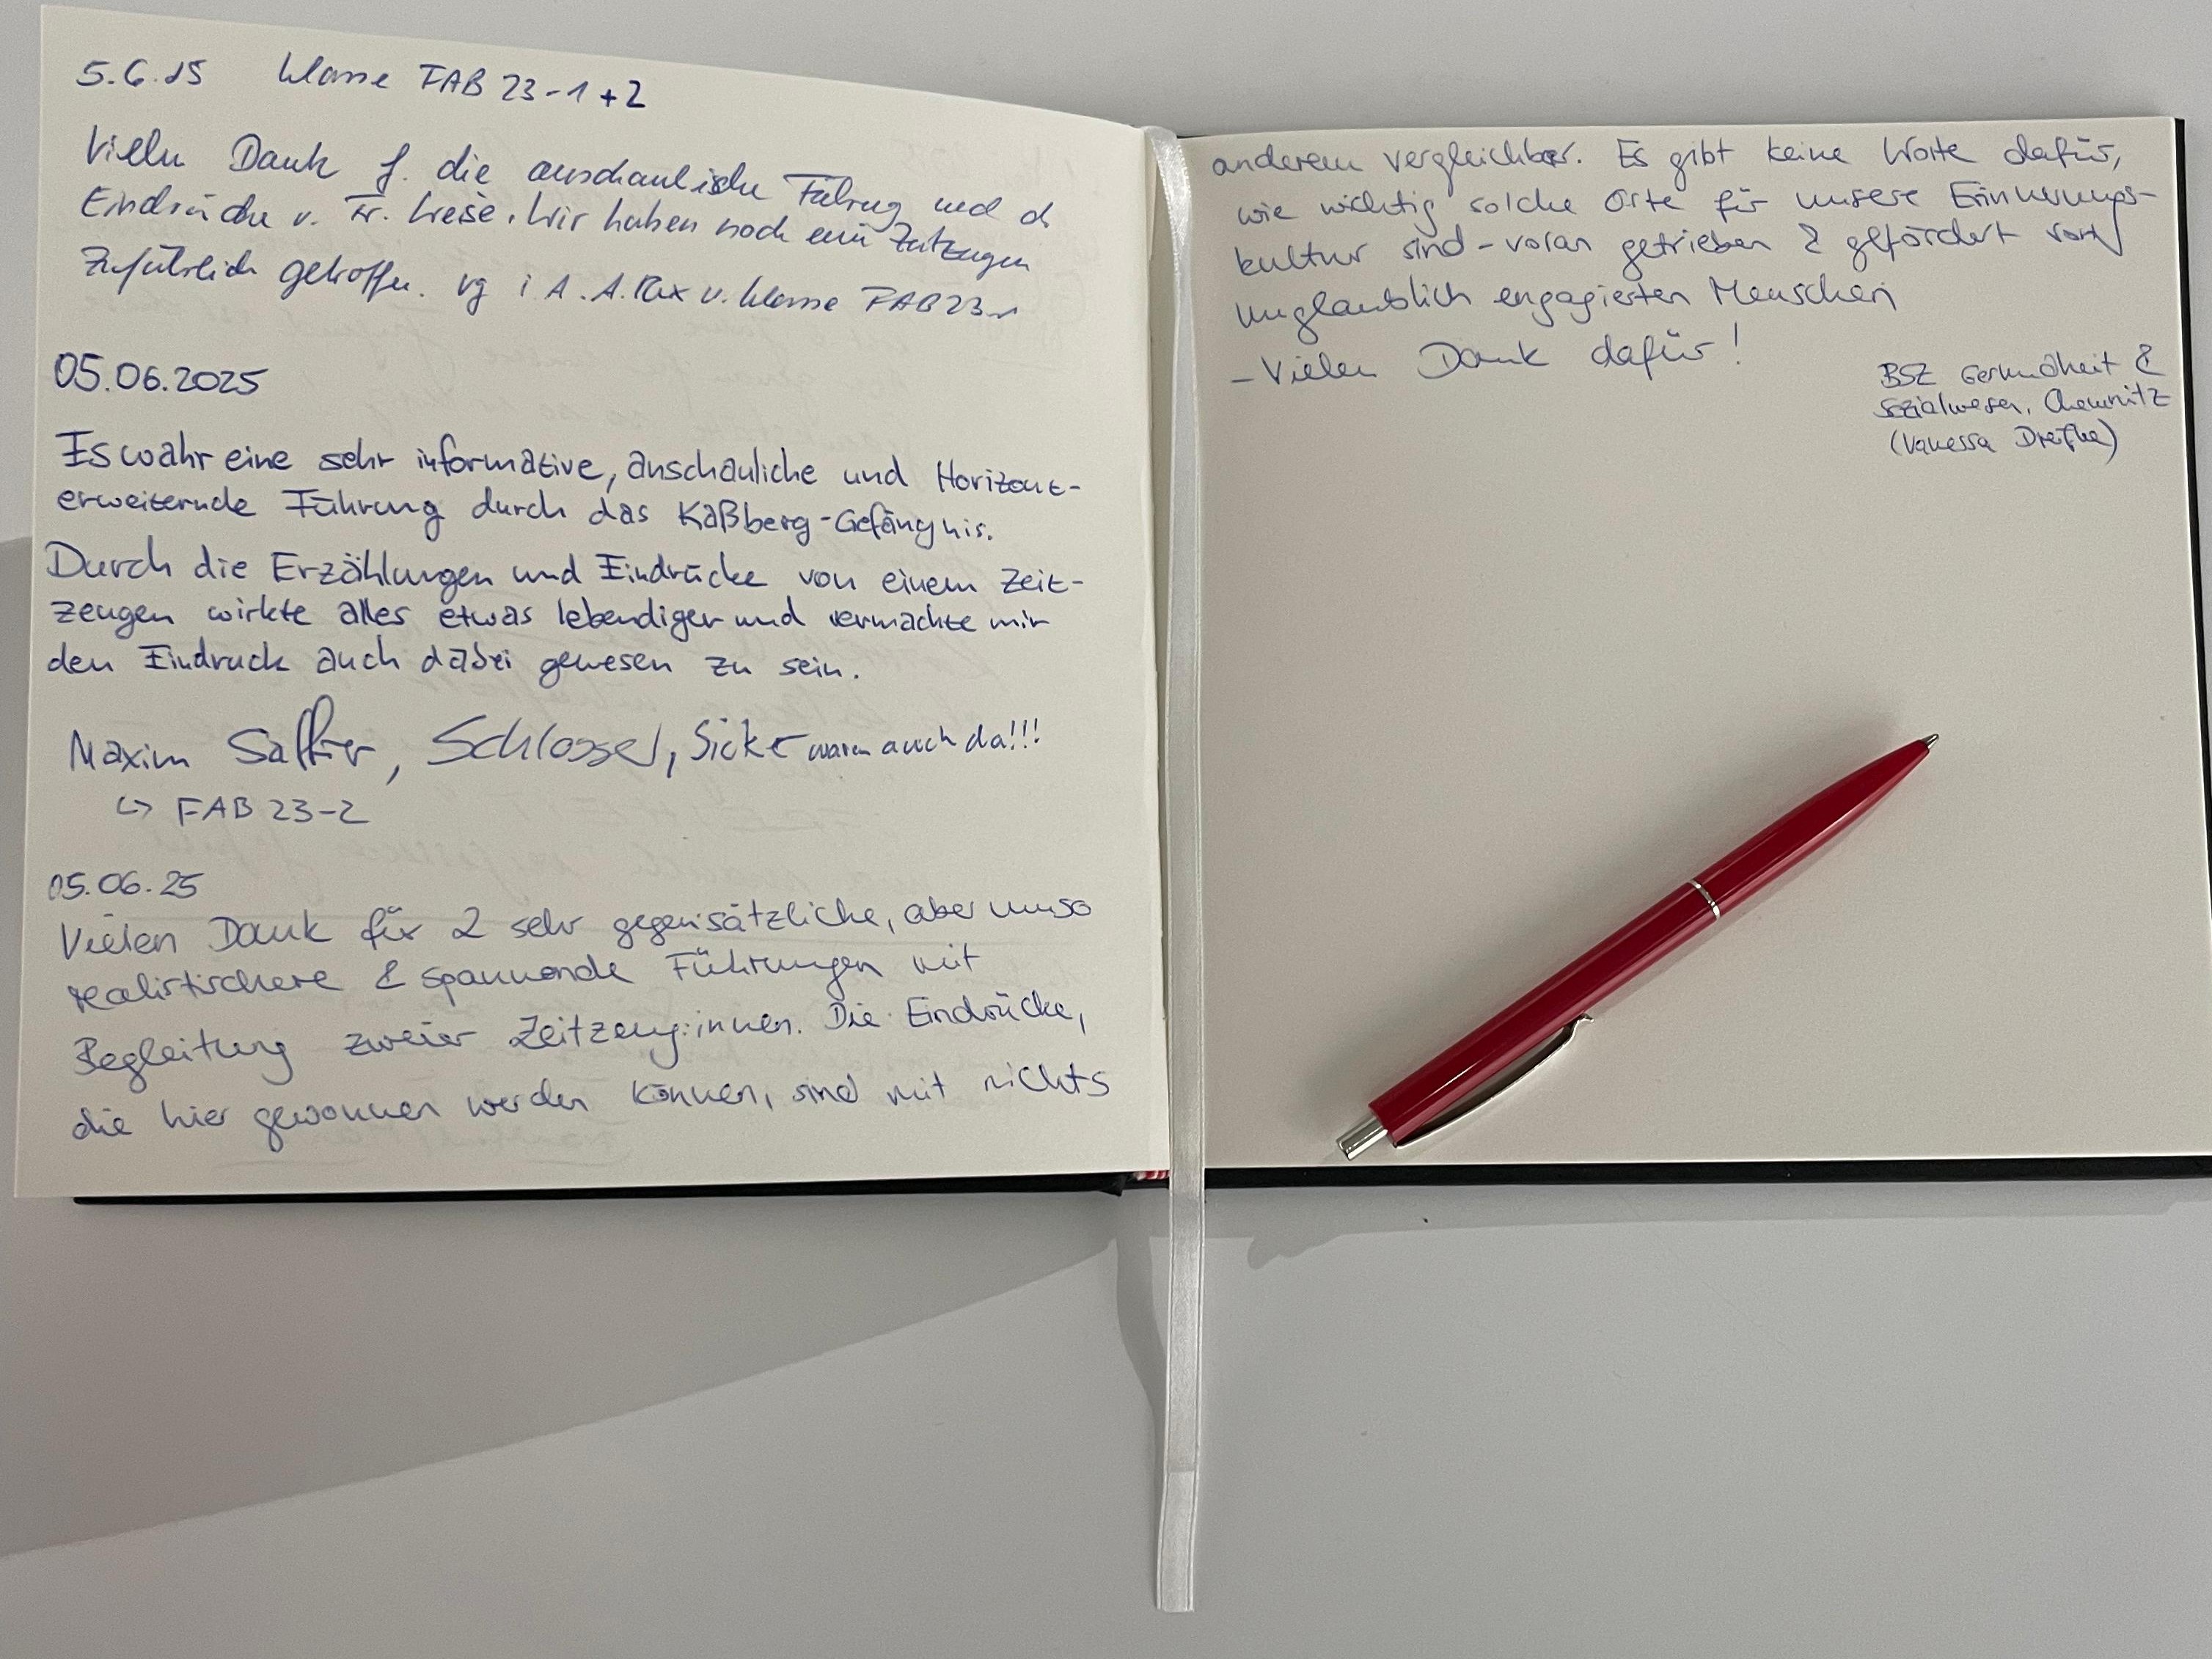 5.6.25 Klasse FAB 23-1+2
Vielen Dank f. die anschauliche Führung und d.
Eindrücke v. Fr. Liese. Wir haben noch ein Zeitzeugen
Zufällig getroffen. vg i. A. A. u. Klasse FAB23-1
05.06.2025
Es wahr eine sehr informative, anschauliche und Horizont-
erweiternde Führung durch das Kaßberg-Gefängnis.
Durch die Erzählungen und Eindrücke von einem Zeit-
zeugen wirkte alles etwas lebendiger und vermachte mir
den Eindruck auch dabei gewesen zu sein.
Maxim Schlosser, Sicker waren auch da!!!
↳ FAB 23-2
05.06.25
Vielen Dank für 2 sehr gegensätzliche, aber umso
realistischere & spannende Führungen mit
Begleitung zweier Zeitzeug:innen. Die Eindrücke,
die hier gewonnen werden können, sind mit nichts
anderem vergleichbar. Es gibt keine Worte dafür,
wie wichtig solche Orte für unsere Erinnerungs-
kultur sind - voran getrieben & gefördert von
unglaublich engagierten Menschen
- Vielen Dank dafür!
BSZ Gesundheit &
Sozialwesen, Chemnitz
(Vanessa